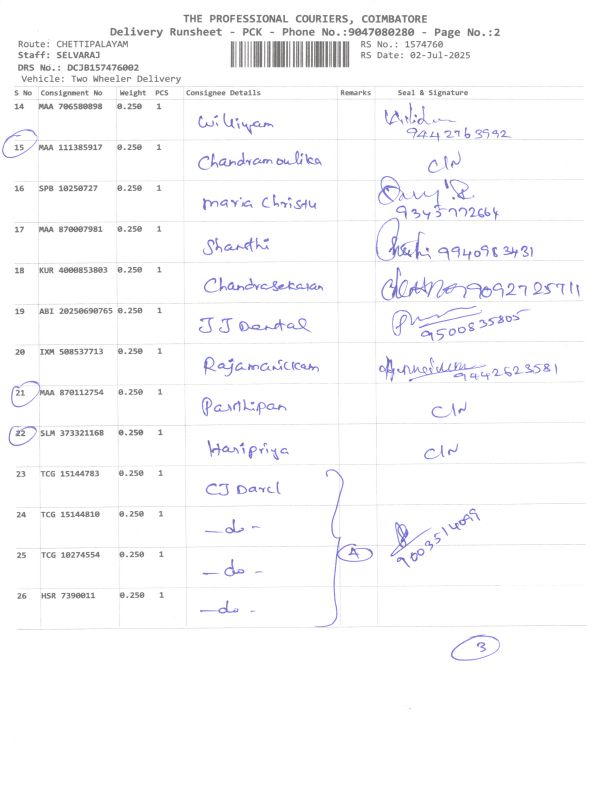 THE PROFESSIONAL COURIERS, COIMBATORE
Delivery Runsheet - PCK - Phone No.:9047080280 - Page No.:2
Route: CHETTIPALAYAM RS No.: 1574760
Staff: SELVARAJ RS Date: 02-Jul-2025
DRS No.: DCJB157476002
Vehicle: Two Wheeler Delivery
S No Consignment No Weight PCS Consignee Details Remarks Seal & Signature
14 MAA 706580898 0.250 1 Williyam
9442763992
15 MAA 111385917 0.250 1 Chandramoulika C/N
16 SPB 10250727 0.250 1 Maria Christu
9345772664
17 MAA 870007981 0.250 1 Shandhi 9940983431
18 KUR 4000853803 0.250 1 Chandrasekaran 99092725711
19 ABI 20250690765 0.250 1 JJ Dental
9500835805
20 IXM 508537713 0.250 1 Rajamanickam
9442623581
21 MAA 870112754 0.250 1 Parthipan C/N
22 SLM 373321168 0.250 1 Haripriya C/N
23 TCG 15144783 0.250 1 CJ Darcl
24 TCG 15144810 0.250 1 -do-
9003514099
25 TCG 10274554 0.250 1 -do- 4
26 HSR 7390011 0.250 1 -do-
3